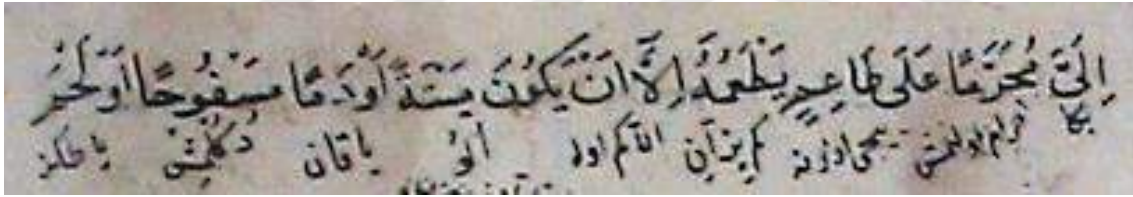 اِلَىَّ مُحَرَّمًا عَلَى طَاعِمٍ يَطْعَمُهُ اِلَّا اَنْ يَكُونَ مَيْتَةً اَوْ دَمًا مَسْفُوحًا اَوْ لَحْمَ
بكا حرام اولنمش اوزرنه كم الا كم اولا الو يا قان دكلمش يا طكز